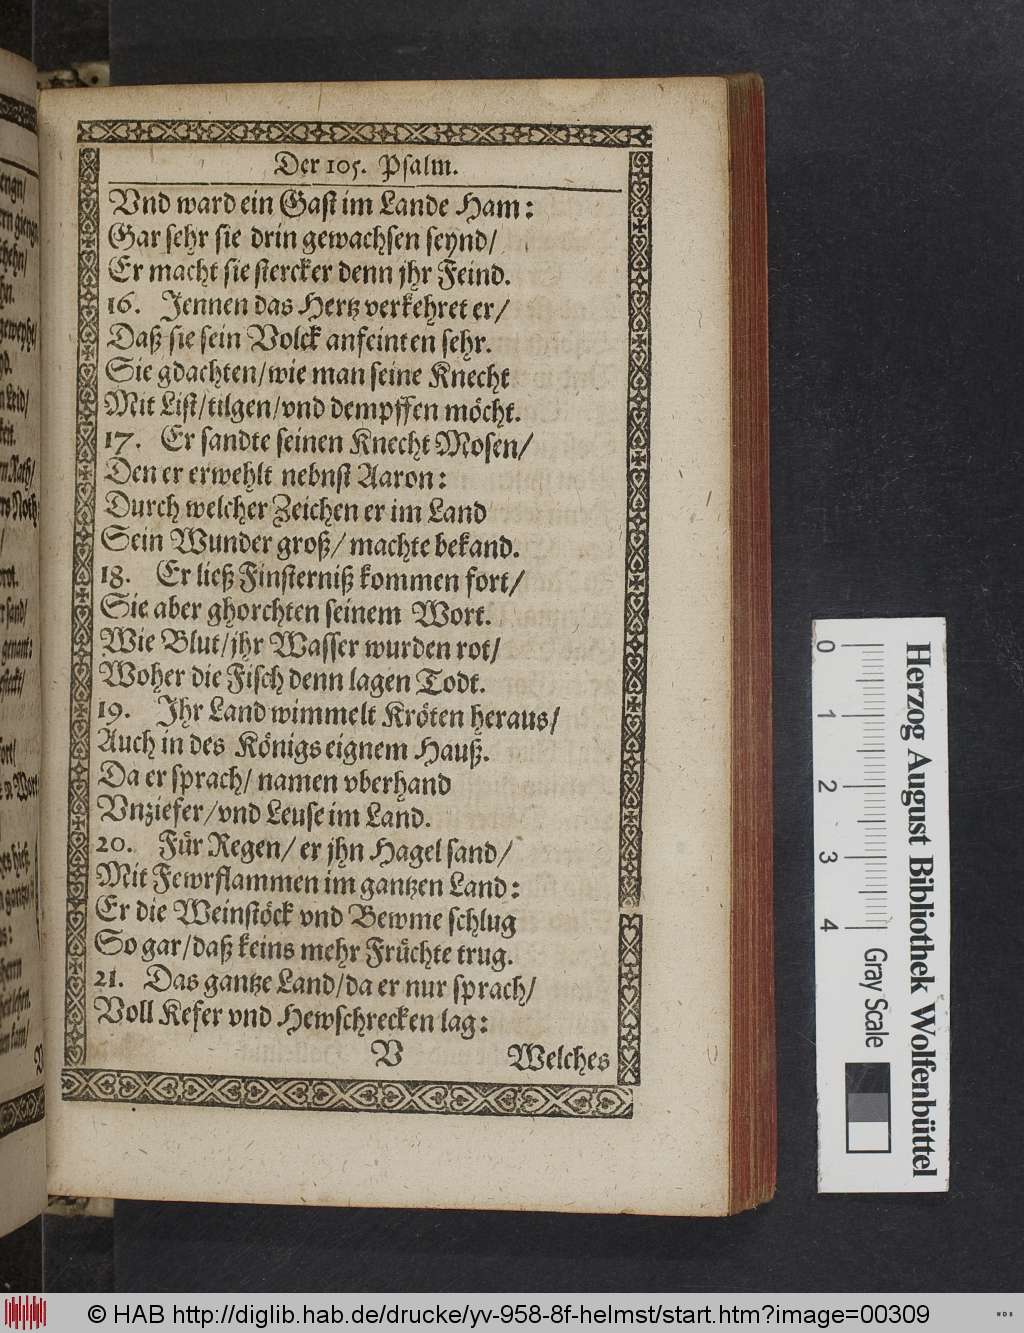 Der 105. Psalm.
Vnd ward ein Gast im Lande Ham:
Gar sehr sie drin gewachsen seynd/
Er macht sie stercker denn jhr Feind.
16. Jennen das Hertz verkehret er/
Daß sie sein Volck anfeinten sehr.
Sie gdachten/wie man seine Knecht
Mit List/tilgen/vnd dempffen möcht.
17. Er sandte seinen Knecht Mosen/
Den er erwehlt nebnst Aaron:
Durch welcher Zeichen er im Land
Sein Wunder groß/ machte bekand.
18. Er ließ Finsterniß kommen fort/
Sie aber ghorchten seinem Wort.
Wie Blut/jhr Wasser wurden rot/
Woher die Fisch denn lagen Todt.
19. Jhr Land wimmelt Kröten heraus/
Auch in des Königs eignem Hauß.
Da er sprach/ namen vberhand
Vnziefer/vnd Leuse im Land.
20. Für Regen/ er jhn Hagel sand/
Mit Fewrflammen im gantzen Land:
Er die Weinstöck vnd Bewme schlug
So gar/daß keins mehr Früchte trug.
21. Das gantze Land/da er nur sprach/
Voll Kefer vnd Hewschrecken lag:
V Welches
0 1 2 3 4
Herzog August Bibliothek Wolfenbüttel
Gray Scale
© HAB http://diglib.hab.de/drucke/yv-958-8f-helmst/start.htm?image=00309